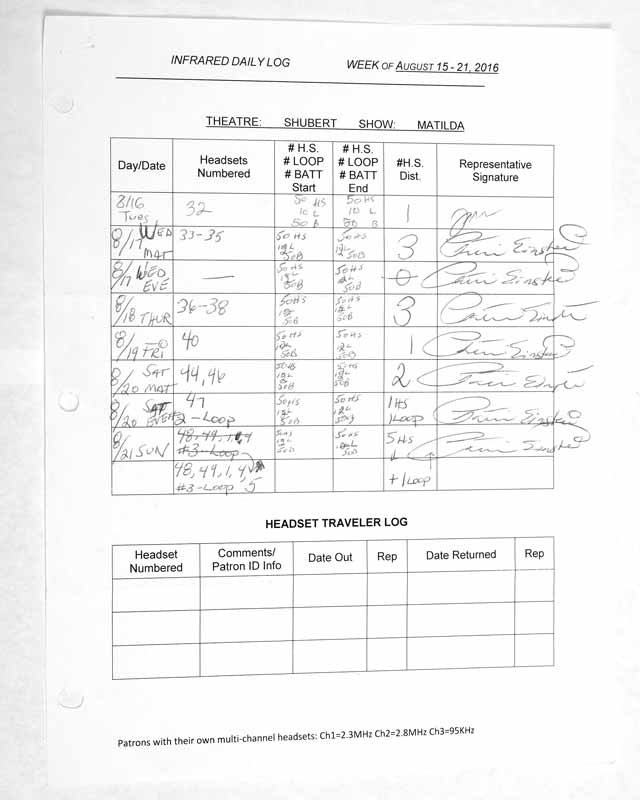 INFRARED DAILY LOG WEEK OF AUGUST 15 - 21, 2016
THEATRE: SHUBERT SHOW: MATILDA
Day/Date
Headsets
Numbered
# H.S.
# LOOP
# BATT
Start
# H.S.
# LOOP
# BATT
End
#H.S.
Dist.
Representative
Signature
8/16
Tues
32
50 HS
10 L
50 B
50 HS
10 L
50 B
1
8/17 WED
MAT
33-35
50 HS
50B
50 HS
50B
3
8/17 WED
EVE
—
50 HS
50B
50 HS
50B
0
8/18 THUR
36-38
50 HS
50B
50 HS
50B
3
8/19 FRI
40
50 HS
50B
50 HS
50B
1
8/20 SAT
MAT
44, 46
50 HS
50B
50 HS
50B
2
8/20 SAT
EVE
47
#2 - Loop
50 HS
50B
50 HS
50B
1 HS
1 Loop
8/21 SUN
48, 49, 1, 4
#3 - Loop
50 HS
50B
50 HS
50B
5 HS
48, 49, 1, 4,
#3 - Loop 5
+ 1 Loop
HEADSET TRAVELER LOG
Headset
Numbered
Comments/
Patron ID Info
Date Out
Rep
Date Returned
Rep
Patrons with their own multi-channel headsets: Ch1=2.3MHz Ch2=2.8MHz Ch3=95KHz